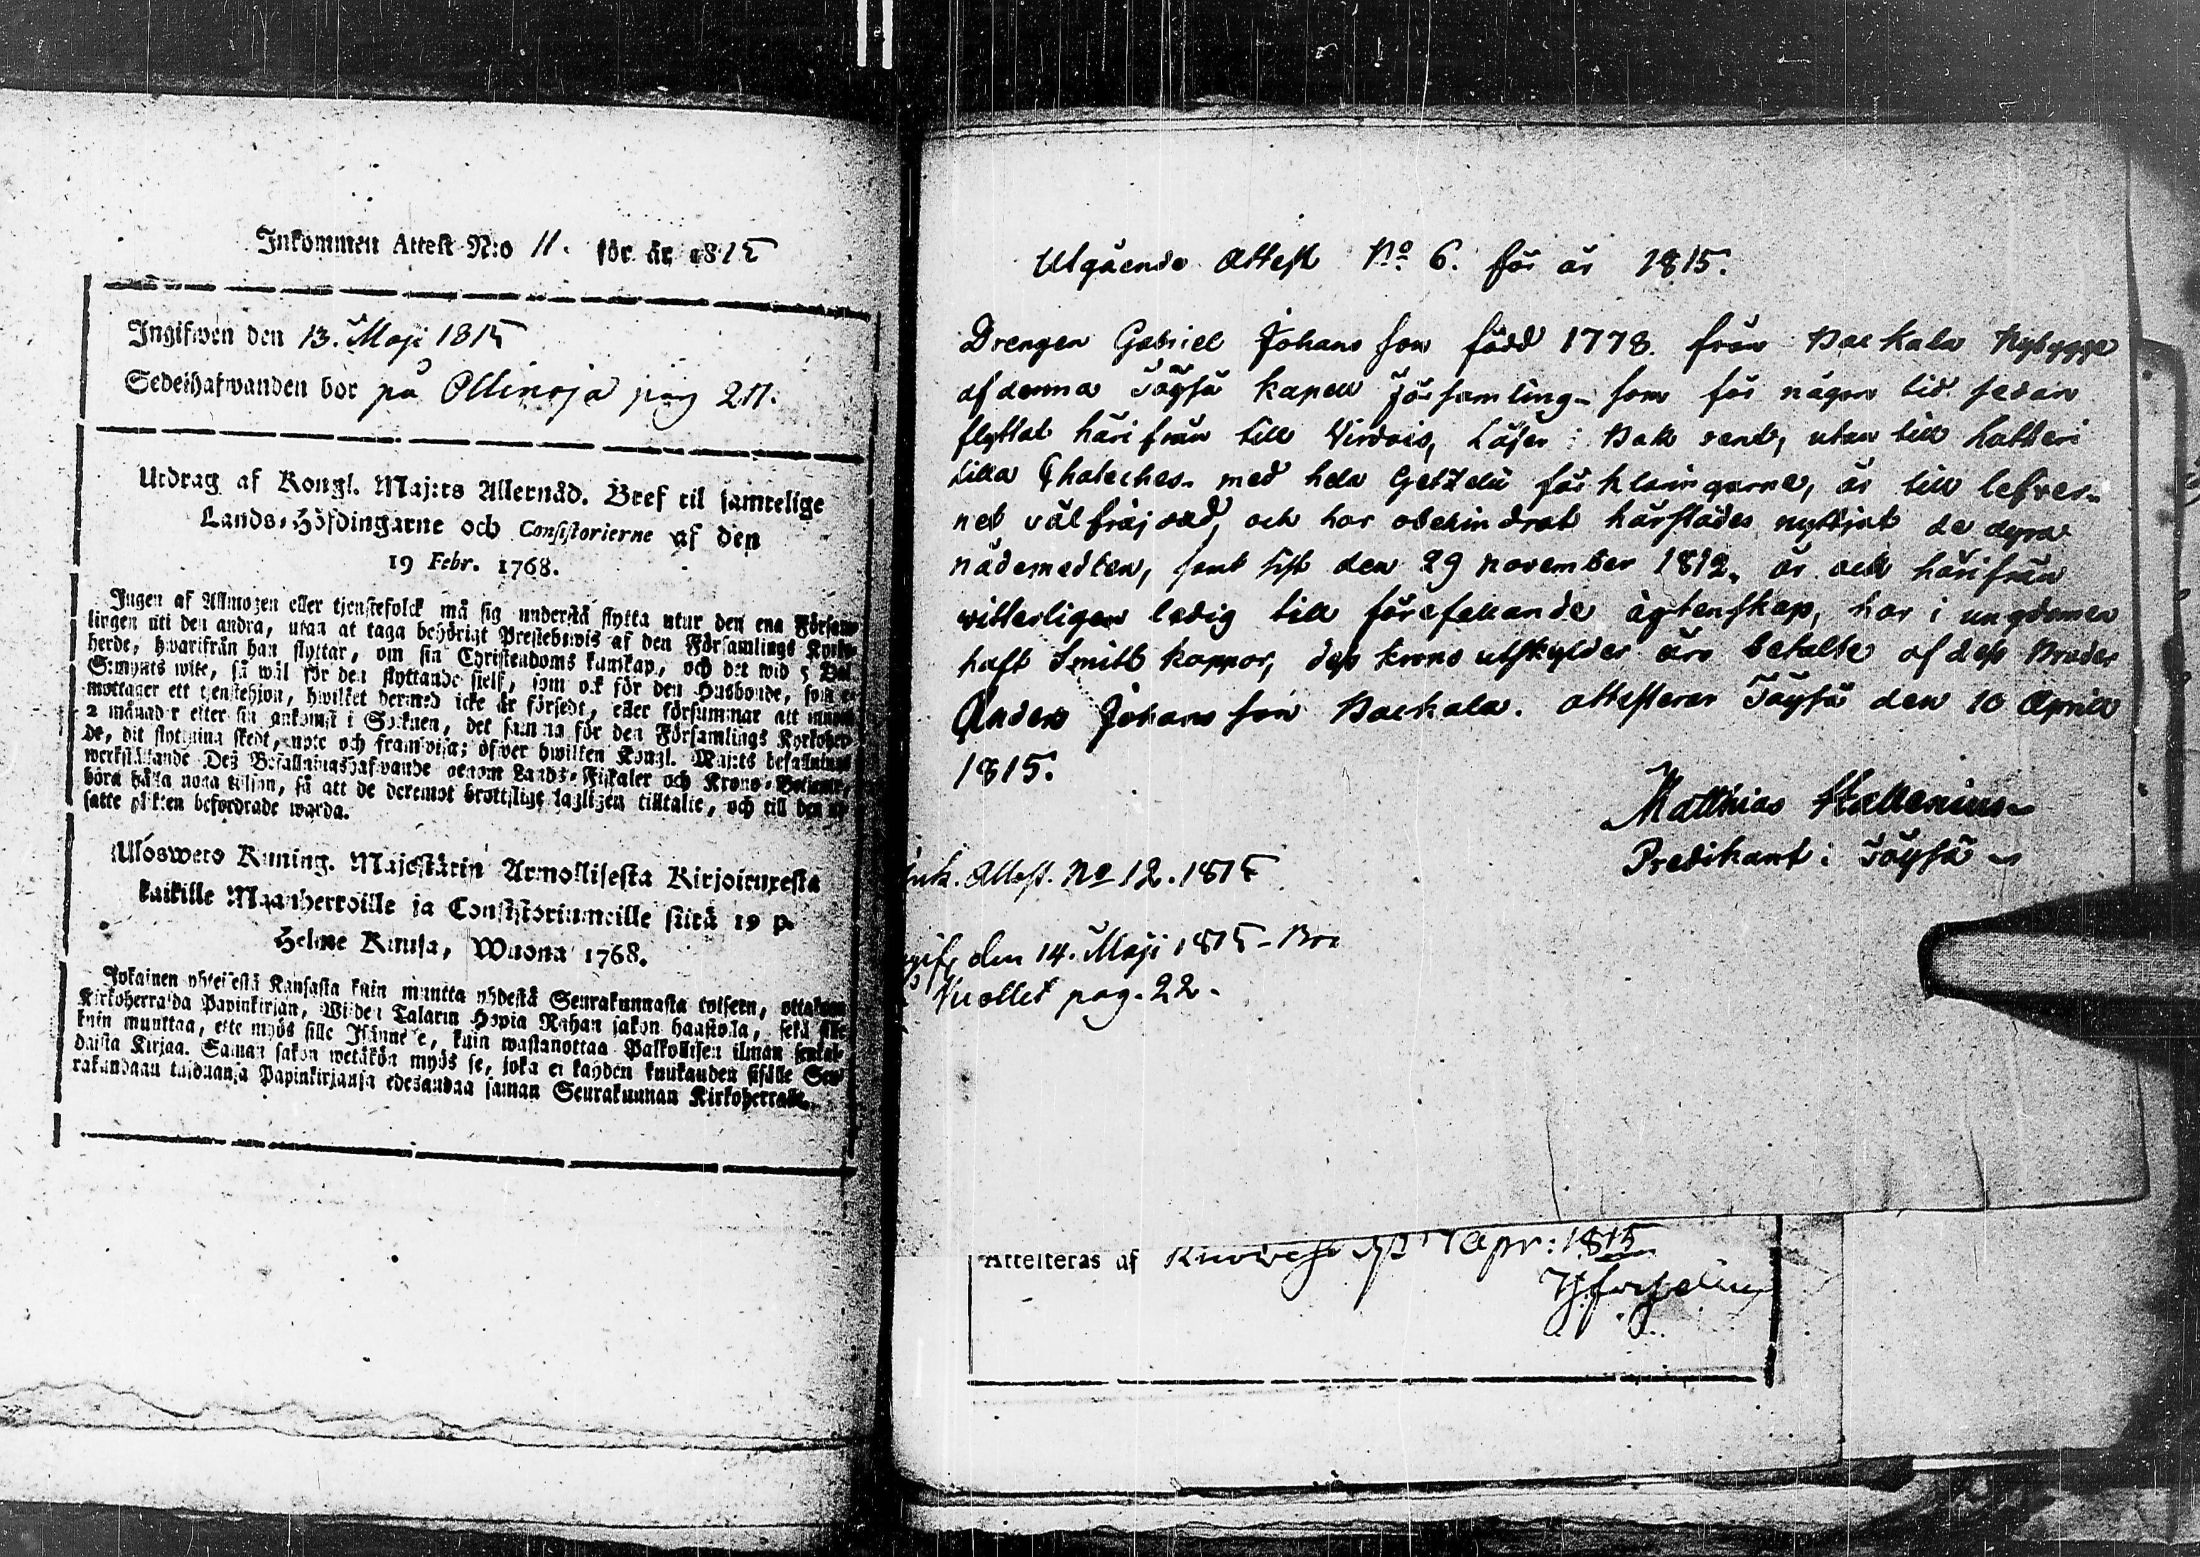 Inkommen Attest N:o 11. för år 1815
Ingifwen den 13. Maji 1815
Sedelhafwanden bor på Ollinoja pag 211.
Utdrag af Kongl. Maj:ts Allernåd. Bref til samtelige
Lands-Höfdingarne och Consistorierne af den
19 Febr. 1768.
Ingen af Allmogen eller tjenstefolck må sig understå flytta utur den ena Försam-
lingen uti den andra, utan at taga behörigt Prestebewis af den Församlings Kyrko-
herde, hwarifrån han flyttar, om sin Christendoms kunskap, och det wid 5 Dal.
S:mynts wite, så wäl för den flyttande sielf, som ock för den Husbonde, som
mottager ett tjenstehjon, hwilket dermed icke är försedt, eller försummar att innom
2 månader efter sin ankomst i Socknen, det samma för den Församlings Kyrkoher-
de, dit flyttning skedt, upte och framwisa; öfwer hwilken Kongl. Maj:ts befallnings
werkställande Dess Befallningshafwande genom Lands-Fiskaler och Krono-Betjente,
böra hålla noga tilsyn, så att de deremot brottslige lagligen tilltalte, och till den
satte plikten befordrade warda.
Ulosweto Kuning. Majestätin Armollisesta Kirjoituxesta
kaikille Maanherroille ja Consistoriumeille siitä 19 p.
Helme Kuusa, Wuona 1768.
Jokainen yhteisestä Kansasta kuin muutta yhdestä Seurakunnasta toiseen, ottakoon
Kirkoherralda Papinkirjan, Wiiden Talarin Hopia Rahan sakon haastolla, sekä sille
kuin muuttaa, ette myös sille Isännelle, kuin wastanottaa Palkollisen ilman senkal-
daista Kirjaa. Saman sakon wetäkön myös se, joka ei kahden kuukauden sisälle Seu-
rakundaan tulduansa Papinkirjansa edesandaa saman Seurakunnan Kirkoherralle.
Utgående Attest No 6. för år 1815.
Drengen Gabriel Johansson född 1778. från Backala Nybygge
af denna Töysä Kapell Församling, som för någon tid sedan
flyttat härifrån till Virdois, Läser i Bok rent, utan till Lutheri
Lilla Chateches. med hela Getzelii förklaringarne, är till lefver-
net välfräjdad, och har obehindrat härstädes nyttjat de dyra
nådemedlen, samt sist den 29 November 1812, är och härifrån
vitterligen ledig till förefallande ägtenskap, har i ungdomen
haft Smittkoppor, dess krono utskylder äro betalte af dess Broder
Anders Johansson Backala. attesterar Töysä den 10 Aprill
1815.
Matthias Hallenius
Predikant i Töysä
Ink. Attest. No 12. 1815
den 14. Maji 1815
Vuollet pag. 22.
Attesteras af Apr: 1815